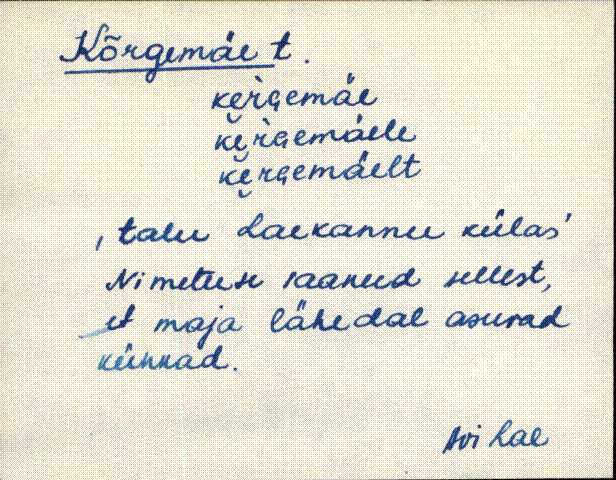 Kõrgemäe t.
ke̮rgemäe
ke̮rgemäele
ke̮rgemäelt
, talu Laekannu külas'
Nimetuse saanud sellest,
et maja lähedal asuvad
künkad.
Avi Lae